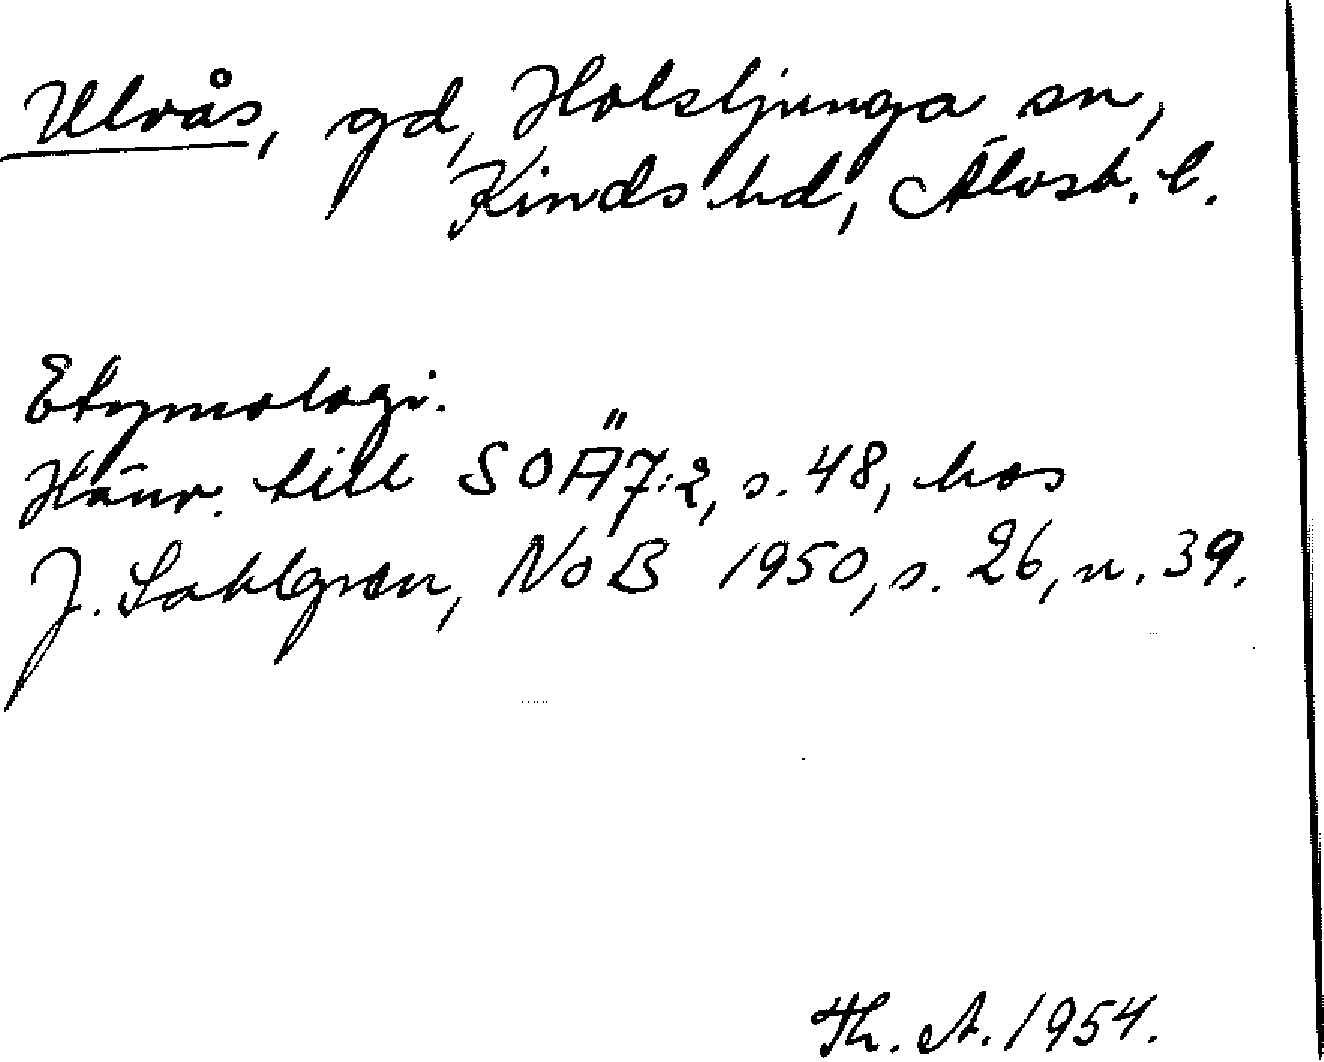 Ulvås, gd, Holsljunga sn,
Kinds hd, Älvsb. l.
Etymologi.
Hänv. till SOÄ7:2, s. 48, hos
J. Sahlgren, NoB 1950, s. 26, n. 39.
Th. A. 1954.